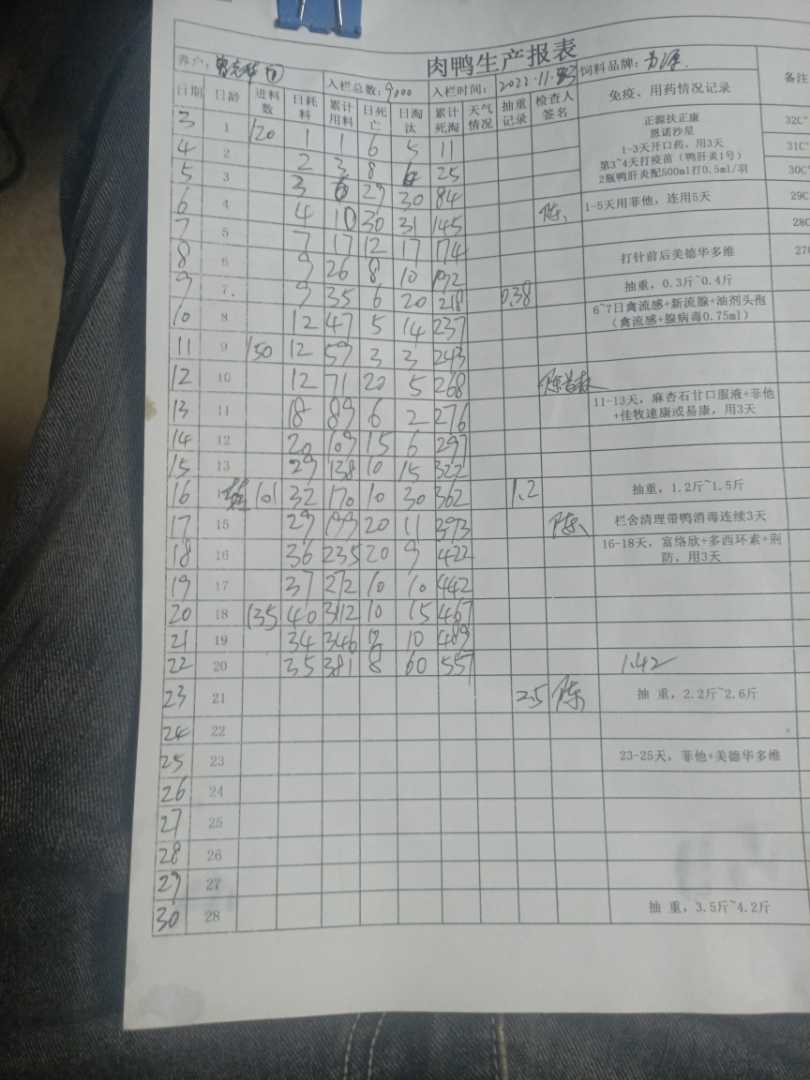 肉鸭生产报表
养户: 入栏总数: 9000 入栏时间: 2022.11. 饲料品牌:
日期 日龄 进料数 日耗料 累计用料 日死亡 日淘汰 累计死淘 天气情况 抽重记录 检查人签名 免疫、用药情况记录 备注
3 1 120 1 1 6 5 11 正源扶正康 32C°
恩诺沙星
1-3天开口药，用3天
4 2 2 3 8 6 25 第3~4天打疫苗（鸭肝炎1号） 31C°
5 3 3 6 29 30 84 2瓶鸭肝炎配500ml打0.5ml/羽 30C°
6 4 4 10 30 31 145 陈 1-5天用菲他，连用5天 29C
7 5 7 17 12 17 174 28C
8 6 9 26 8 10 192 打针前后美德华多维 27
9 7 9 35 6 20 218 0.38 抽重，0.3斤~0.4斤
10 8 12 47 5 14 237 6~7日禽流感+新流腺+油剂头孢
（禽流感+腺病毒0.75ml）
11 9 150 12 59 3 3 243
12 10 12 71 20 5 268
13 11 18 89 6 2 276 11-13天，麻杏石甘口服液+菲他
+佳牧速康或易康，用3天
14 12 20 109 15 6 297
15 13 29 138 10 15 322
16 101 32 170 10 30 362 1.2 抽重，1.2斤~1.5斤
17 15 29 199 20 11 393 陈 栏舍清理带鸭消毒连续3天
18 16 36 235 20 9 422 16-18天，富络欣+多西环素+荆
防，用3天
19 17 37 272 10 10 442
20 18 135 40 312 10 15 467
21 19 34 346 12 10 489
22 20 35 381 8 60 557 1.42
23 21 2.5 陈 抽 重，2.2斤~2.6斤
24 22
25 23 23-25天，菲他+美德华多维
26 24
27 25
28 26
29 27
30 28 抽 重，3.5斤~4.2斤